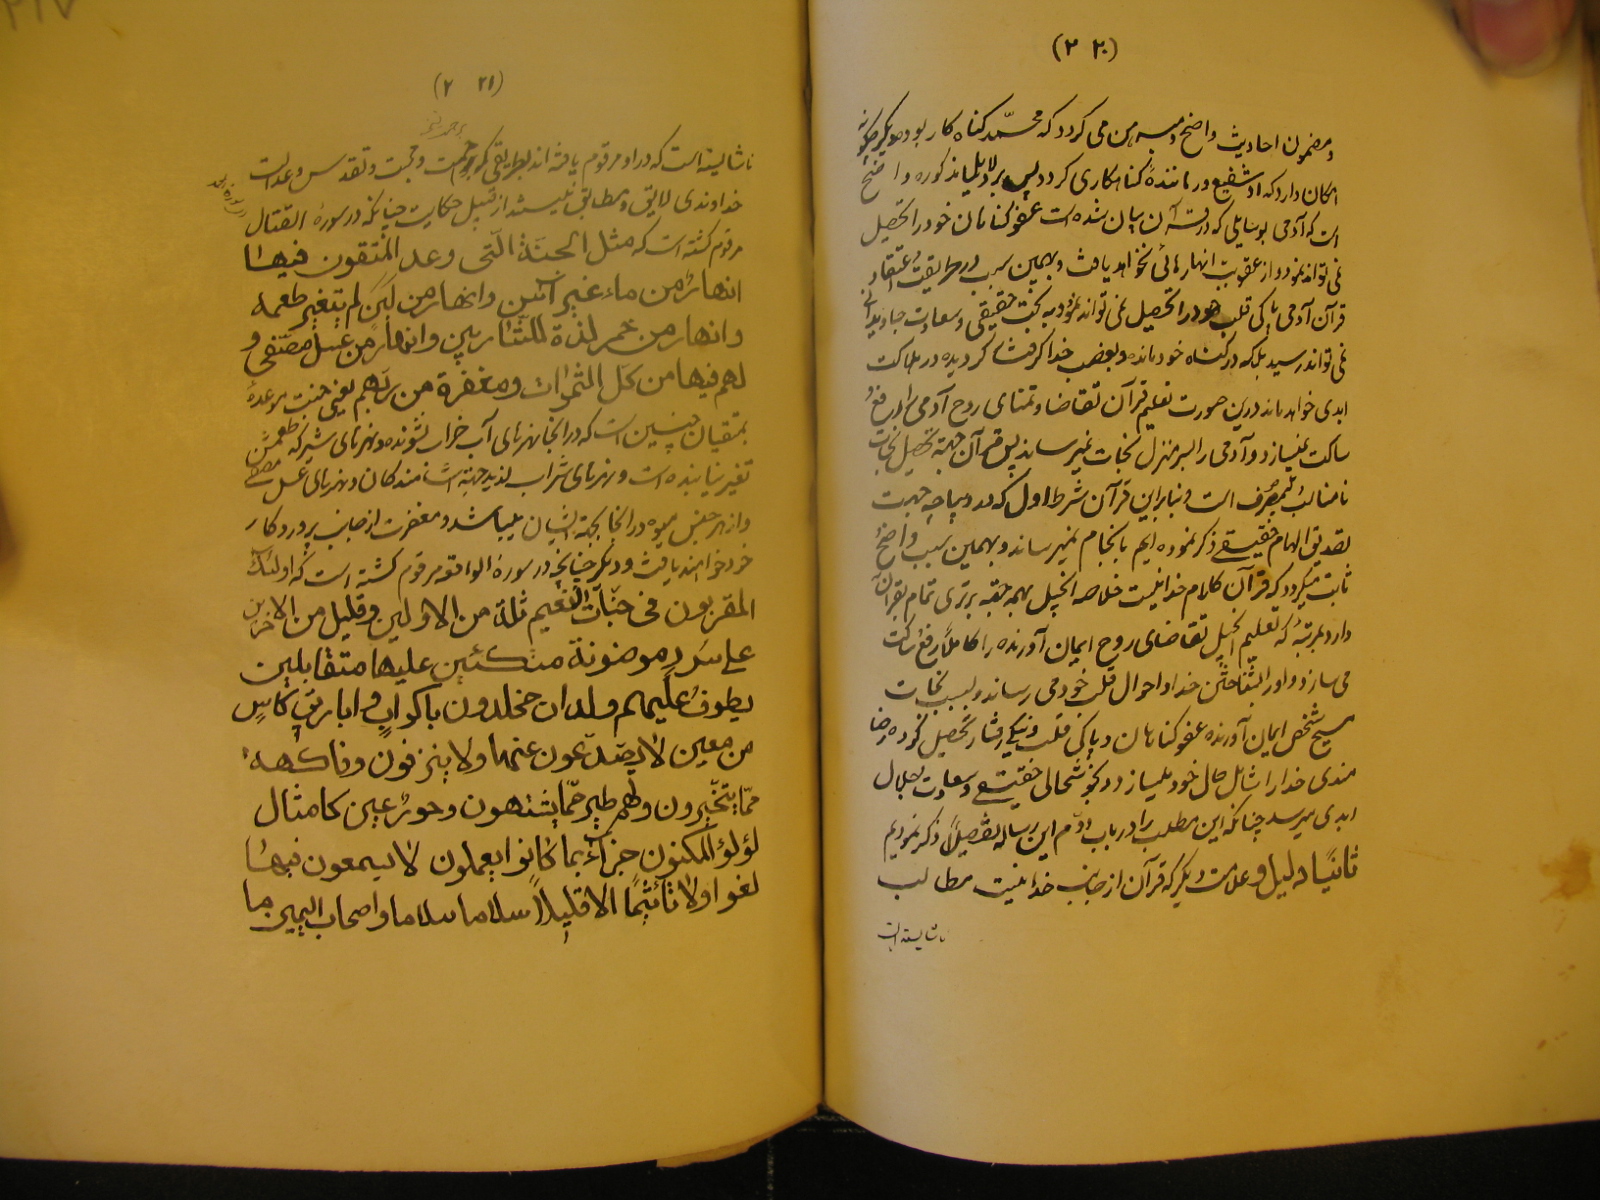 (۲۲۰)
و مضمون احادیث واضح و مبرهن می گردد که محمّد گناه کار بود دیگر چگونه
امکان دارد که او شفیع درمانندهٔ گناهکاری گردد پس بر دلایل مذکوره واضح
است که آدمی بوسایلی که در قرآن بیان شده است عفو گناهان خود را تحصیل
نمی تواند نمود و از عقوبت آنها رهائی نخواهد یافت و بهمین سبب در طریقت و اعتقاد
قرآن آدمی پاکی قلب خود را تحصیل نمی تواند نمود به بخت حقیقی و سعادت جاودانی
نمی تواند رسید بلکه در گناه خود مانده و بغضب خدا گرفتار گردیده در هلاکت
ابدی خواهد ماند درین صورت تعلیم قرآن تقاضا و تمنای روح آدمی را رفع و
ساکت نمیسازد و آدمی را بسر منزل نجات نمیرساند پس قرآن جهة تحصیل نجات
نامناسب و بیمصرف است و بنابراین قرآن شرط اول که در دیباچه جهت
تصدیق الهام حقیقی ذکر نموده ایم بانجام نمیرساند و بهمین سبب واضح و
ثابت میگردد که قرآن کلام خدا نیست خلاصه انجیل بهمه جهة برتری تمام بقرآن
دارد بمرتبهٔ که تعلیم انجیل تقاضای روح ایمان آورنده را کاملاً رفع و ساکت
می سازد و او را بشناختن خدا و احوال قلب خود می رساند و بسبب نجات
مسیح شخص ایمان آورنده عفو گناهان و پاکی قلب و نیکی رفتار تحصیل کرده رضا
مندی خدا را شامل حال خود میسازد و بخوشحالی حقیقی و سعادت بیزوال
ابدی میرسد چنانکه این مطلب را در باب دوّم این رساله بتفصیل ذکر نمودیم
ثانیًا دلیل و علامت دیگر که قرآن از جانب خدا نیست مطالب
ناشایسته است
(۲۲۱)
ناشایسته است که در او مرقوم یافته اند بطریقی که برحمت و محبت و تقدس و عدالت
خداوندی لایق و مطابق نیستند از قبیل حکایت چنانکه در سورهٔ القتال
مرقوم گشته است که مثل الجنّة الّتی وعد المتّقون فیها
انهارٌ من ماء غیر آسن وانهار من لبن لم یتغیر طعمه
وانهار من خمر لذة للشّاربین وانهار من عسل مصفّی و
لهم فیها من کلّ الثمرات ومغفرة من ربّهم یعنی جنت موعدهٔ
بمتقیان چنین است که در آنجا نهرهای آب خراب نشونده و نهرهای شیر که طعمش
تغیر نیابنده است و نهرهای شراب لذید جهة آشامندگان و نهرهای عسل مصفی
و از هر جنس میوه در آنجا بجهة ایشان میباشد و مغفرت از جانب پروردگار
خود خواهند یافت و دیگر چنانچه در سورهٔ الواقعه مرقوم گشته است که اولئک
المقربون فی جنّات النّعیم ثلة من الاولین وقلیل من الاخرین
علی سرر موضونة متکئین علیها متقابلین
یطوف علیهم ولدان مخلدون باکواب و اباریق و کاس
من معین لا یصدّعون عنها ولا ینزفون وفاکهة
ممّا یتخیّرون ولحم طیر ممّا یشتهون وحورٌ عین کامثال
لؤلؤ المکنون جزاءً بما کانوا یعملون لا یسمعون فیها
لغوا ولا تأثیمًا الا قیلاً سلاما سلاما واصحاب الیمین ما